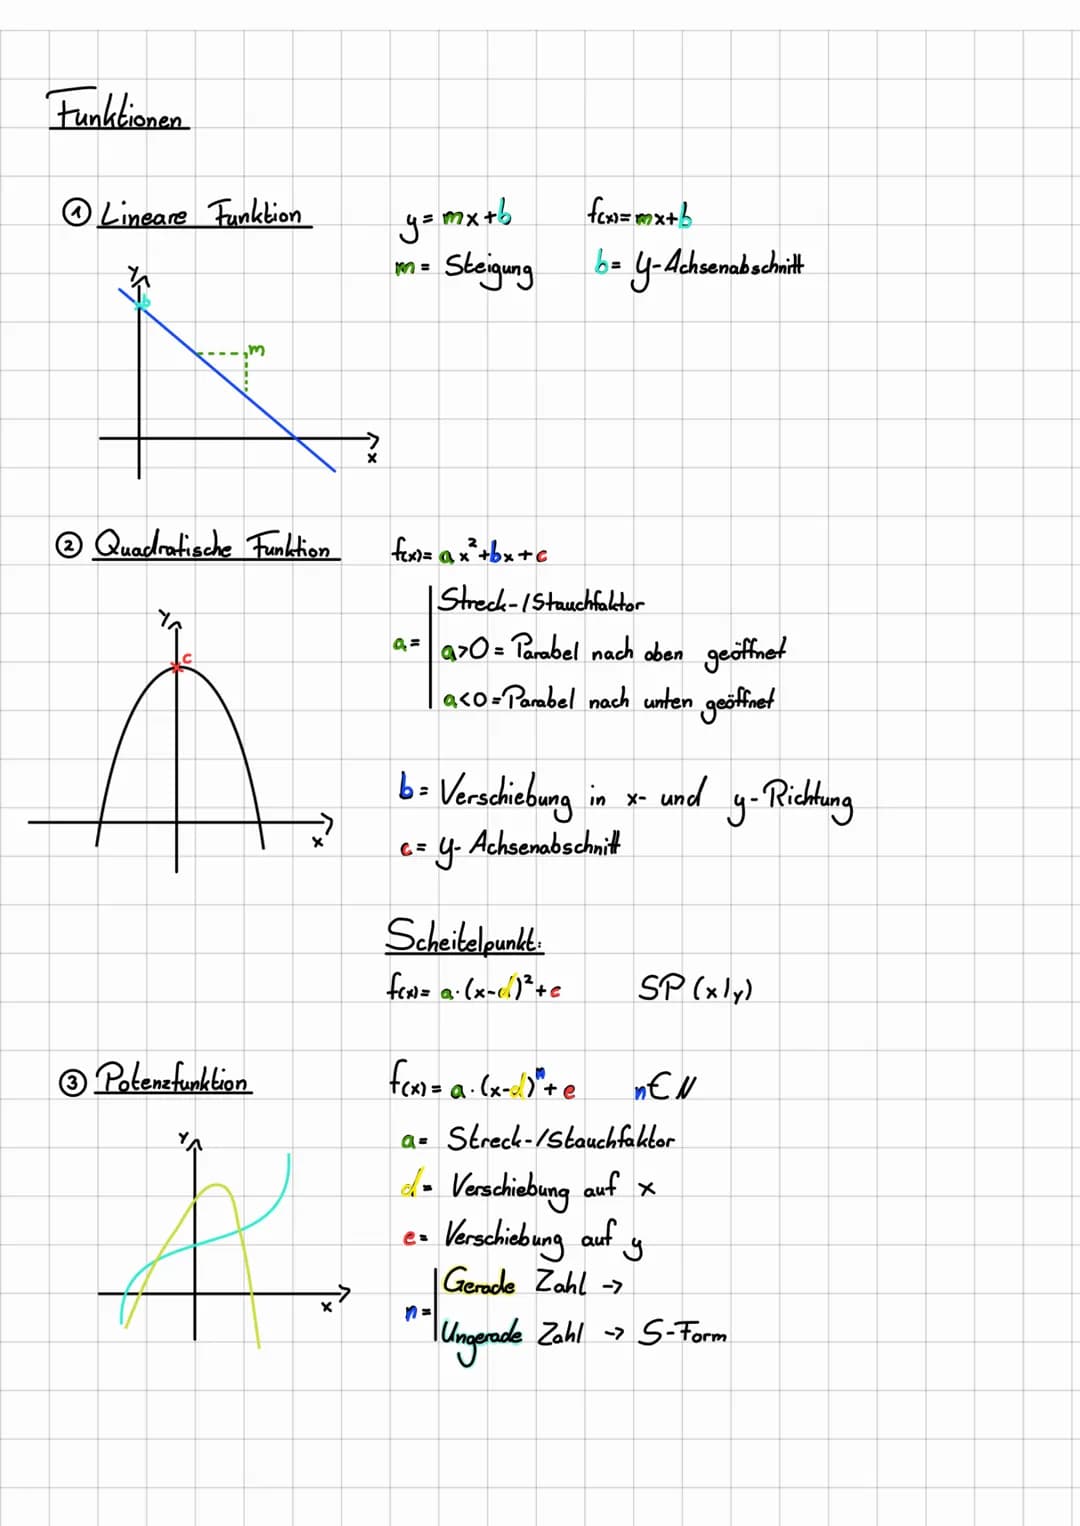 Funktionen
① Lineare Funktion
y = mx+b
f(x)= mx+b
m = Steigung
b= y-Achsenabschnitt
y
b
m
x
② Quadratische Funktion
f(x)= ax²+bx+c
a= Streck-/Stauchfaktor
a>0 = Parabel nach oben geöffnet
a<0 = Parabel nach unten geöffnet
y
c
x
b= Verschiebung in x- und y-Richtung
c= y-Achsenabschnitt
Scheitelpunkt:
f(x)= a·(x-d)²+e
SP (x|y)
③ Potenzfunktion
f(x)= a·(x-d)ⁿ+e
n∈ℕ
y
x
a= Streck-/Stauchfaktor
d= Verschiebung auf x
e= Verschiebung auf y
n= Gerade Zahl ->
Ungerade Zahl -> S-Form